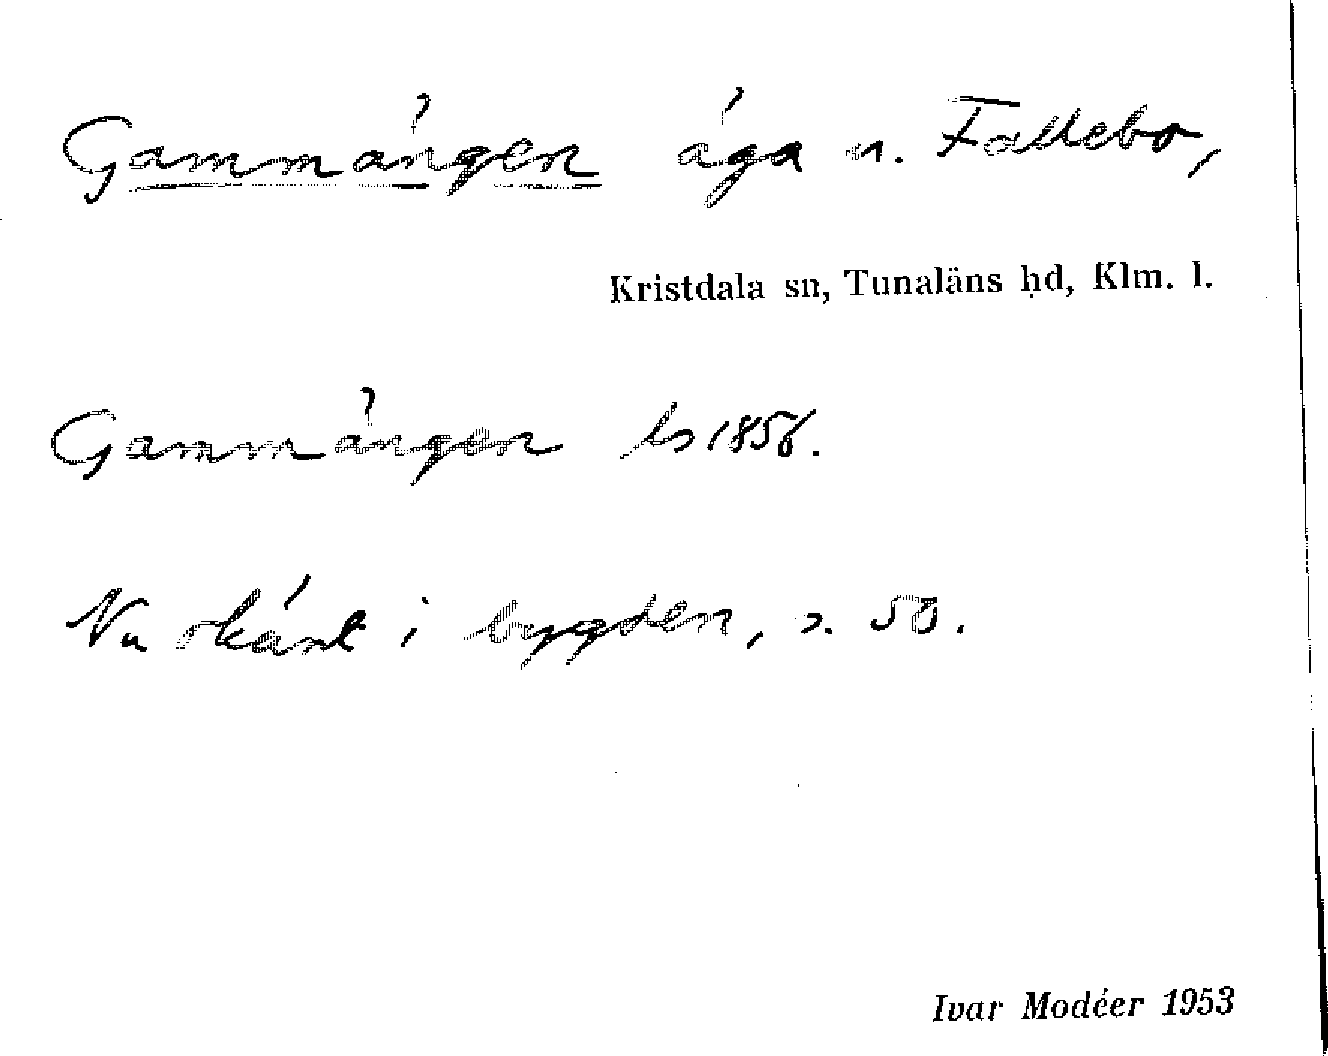 Gammängen äga u. Fallebo,
Kristdala sn, Tunaläns hd, Klm. l.
Gammängen ls 1856.
Nu okänt i bygden, s. 50.
Ivar Modéer 1953